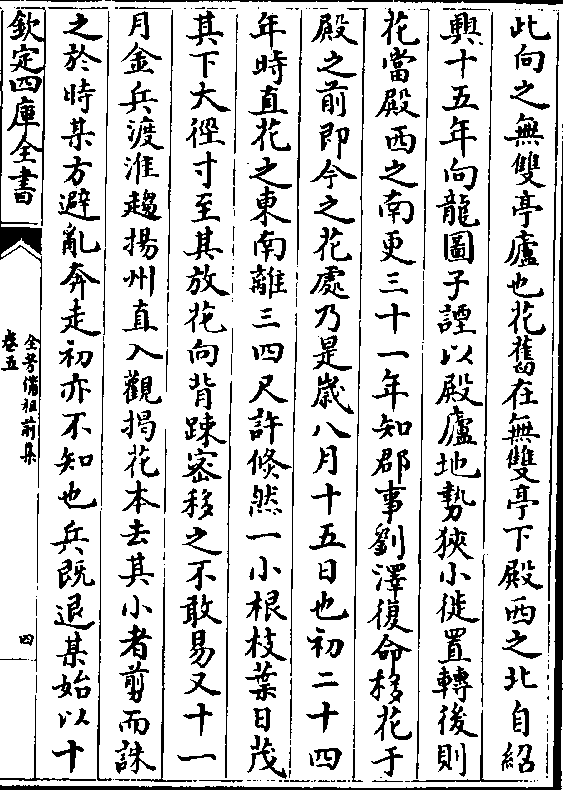 此向之無雙亭廬也花舊在無雙亭下殿西之北自紹
興十五年向龍圖子諲以殿廬地勢狹小徙置轉後則
花當殿西之南更三十一年知郡事劉澤復命移花于
殿之前即今之花處乃是歲八月十五日也初二十四
年時直花之東南離三四尺許倏然一小根枝葉日茂
其下大徑寸至其放花向背踈宻移之不敢易又十一
月金兵渡淮趨揚州直入觀揭花本去其小者剪而誅
之於時某方避亂奔走初亦不知也兵既退某始以十
欽定四庫全書
全芳備祖前集
卷五
四